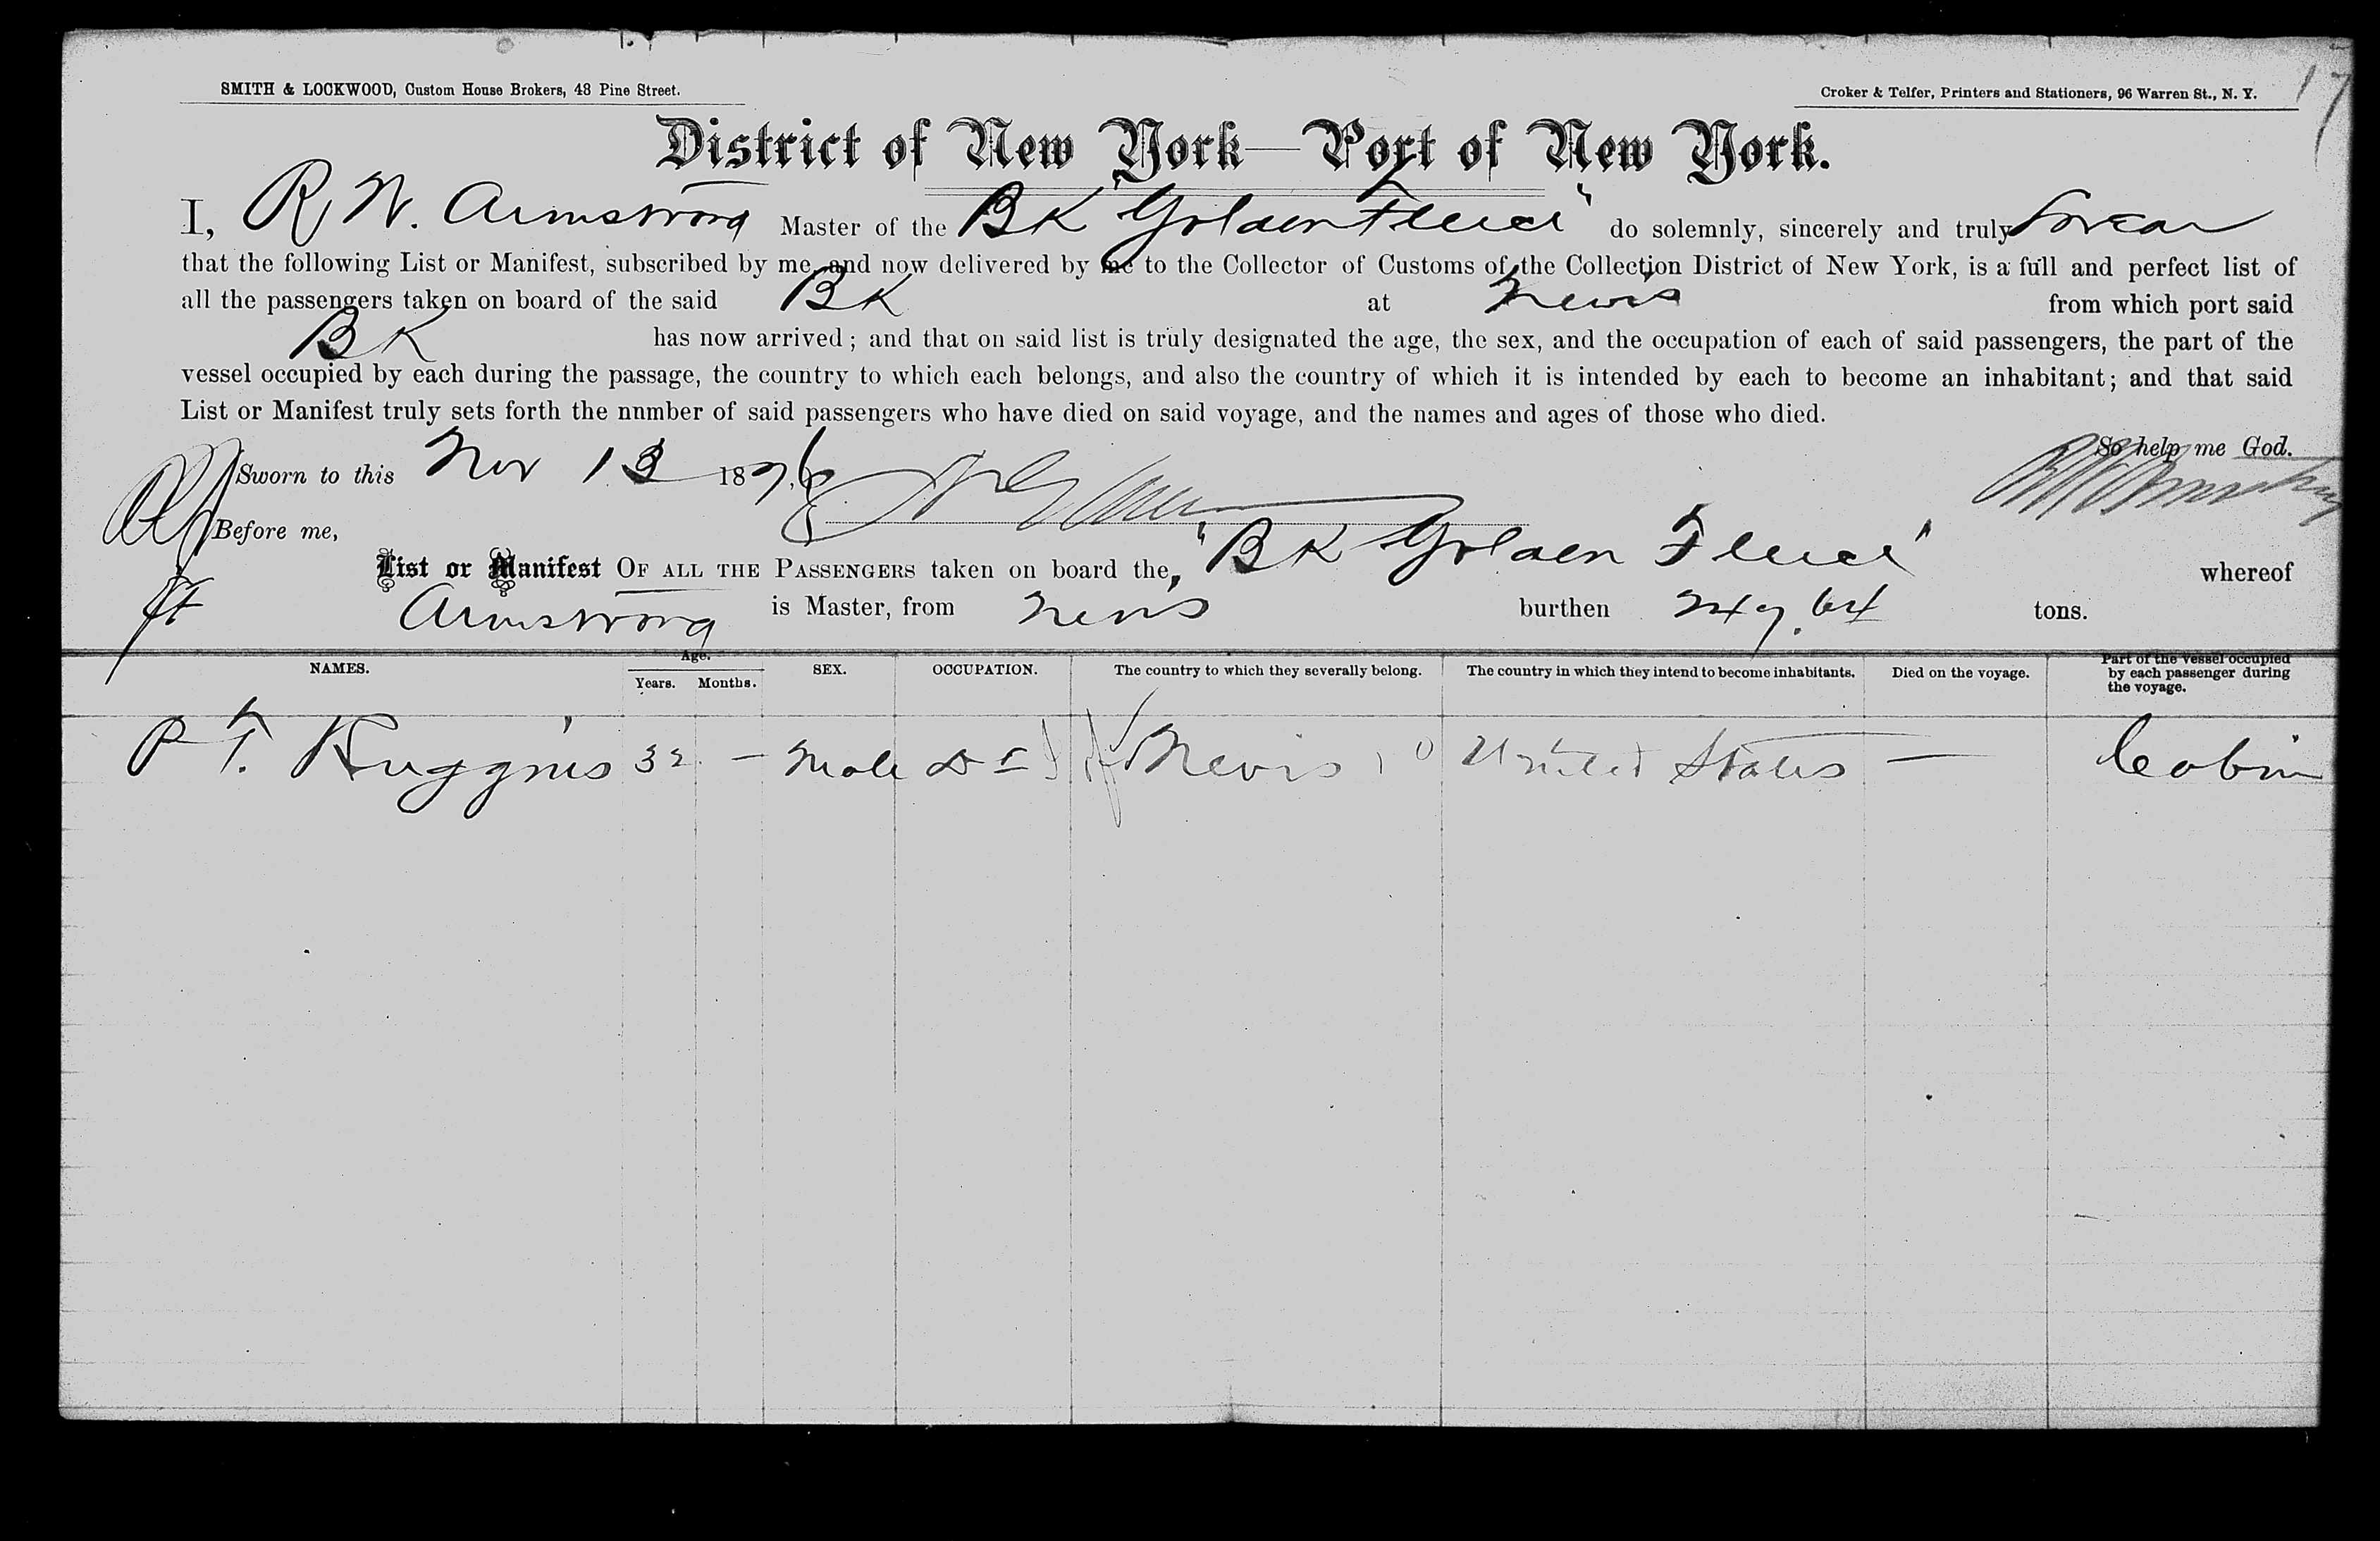 17
SMITH & LOCKWOOD, Custom House Brokers, 48 Pine Street.
Croker & Telfer, Printers and Stationers, 96 Warren St., N. Y.
District of New York—Port of New York.
I, R W. Armstrong Master of the BK "Golden Fleece" do solemnly, sincerely and truly Swear
that the following List or Manifest, subscribed by me, and now delivered by me to the Collector of Customs of the Collection District of New York, is a full and perfect list of
all the passengers taken on board of the said BK at Nevis from which port said
BK has now arrived; and that on said list is truly designated the age, the sex, and the occupation of each of said passengers, the part of the
vessel occupied by each during the passage, the country to which each belongs, and also the country of which it is intended by each to become an inhabitant; and that said
List or Manifest truly sets forth the nnmber of said passengers who have died on said voyage, and the names and ages of those who died.
So help me God.
Sworn to this Nov 13 1876 R W Armstrong
Before me,
List or Manifest OF ALL THE PASSENGERS taken on board the, "BK Golden Fleece" whereof
Armstrong is Master, from Nevis burthen 247.64 tons.
NAMES. Age. Years. Months. SEX. OCCUPATION. The country to which they severally belong. The country in which they intend to become inhabitants. Died on the voyage. Part of the vessel occupied by each passenger during the voyage.
P T. Huggins 32 — Male Nevis United States — Cabin